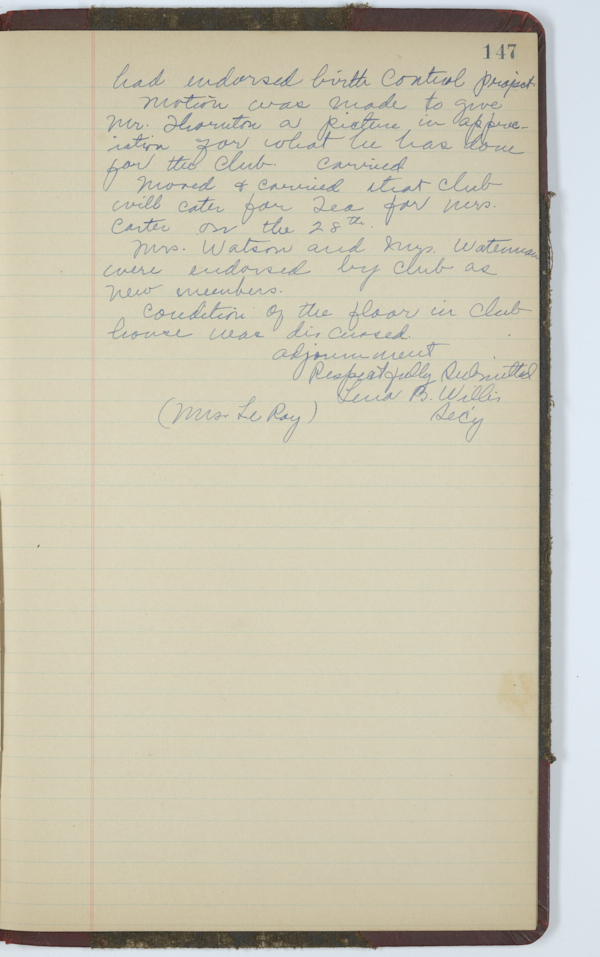 147
had endorsed birth control project.
Motion was made to give
Mr. Thornton a picture in apprec-
iation for what he has done
for the Club. Carried
Moved & carried that Club
will cater for Tea for Mrs.
Carter on the 28th.
Mrs. Watson and Mrs. Waterman
were endorsed by club as
new members.
Condition of the floor in Club
house was discussed.
adjournment
Respectfully Submitted
Lena B. Willis
(Mrs Le Roy) Sec'y